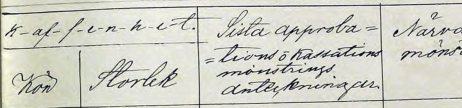 k-af-f-e-n-h-e-t.
Kön
Storlek
Sista approba=
=tions o kassations
mönstrings
anteckningar
Närva
mönst